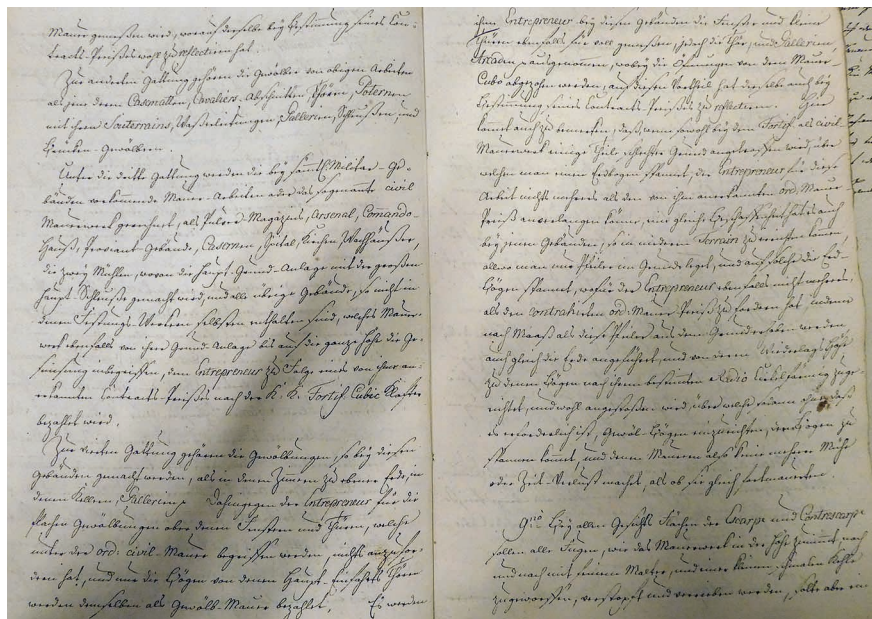 Mauer gemessen wird, worauf derselbe bey Bestimmung seines Con-
tracts-Preißes wohl zu reflectiren hat.
Zur anderten Gattung gehören die Gewölber von obigen Arbeiten
als von denen Casematten, Cavaliers, Abschnitten, Thören, Poternen
mit ihren Souterrains, Wasserleitungen, Gallerien, Schleußen, und
Brücken-Gewölbern.
Unter die dritte Gattung werden die bey sämtl. Militar-Ge-
bäuden vorkommende Mauer-Arbeiten oder das sogenante civil
Mauerwerk gerechnet, als Pulver-Magazins, Arsenal, Comando-
Hauß, Proviant-Gebäude, Casernen, Spital, Kirchen, Wachhäußer,
die zwey Mühlen, woran die Haupt-Grund-Anlage mit der großen
Haupt-Schleuße gemacht wird, und alle übrige Gebäude, so nicht in
denen Festungs-Werken selbsten enthalten sind, welches Mauer-
werk ebenfalls von ihrer Grund-Anlage bis auf die ganze Höhe die Ge-
simsung inbegriffen, dem Entrepreneur zu Folge eines von ihm an-
erkanten Contracts-Preißes nach der K. K. Fortif. Cubic Klafter
bezahlet wird.
Zur vierten Gattung gehören die Gewölbungen, so bey diesen
Gebäuden gemacht werden, als in denen Zimern zu ebener Erde, in
denen Kellern, Gallerien Dahingegen der Entrepreneur für die
flachen Gewölbungen ober denen Fenstern und Thüren, welche
unter der ord: civil-Mauer begriffen werden, nichts anzufor-
dern hat, und nur die Bögen von denen Haupt-Einfahrts Thören
werden demselben als Gewölb-Mauer bezahlet. Es werden
ihm Entrepreneur bey diesen Gebäuden die Fenster und kleine
Thüren ebenfalls für voll gemessen, jedoch die Thör, und Gallerien
Arcaden ausgenommen, wobey die Öfnungen von dem Mauer-
Cubo abgezohen werden, auf diesen Vortheil hat derselbe auch bey
Bestimmung seines Contracts-Preißes zu reflectiren. Hier
komt auch zu bemerken, daß, wenn sowohl bey dem Fortif. als civil
Mauerwerk einige Theile schlechte Grund angetroffen wird, über
welchen man einen Erdbogen spannet, der Entrepreneur für diese
Arbeit nichts mehreres als den von ihm anerkannten ord. Mauer
Preiß anverlangen könne, eine gleiche Beschaffenheit hat es auch
bey jenen Gebäuden, so in niederen Terrain zu errichten komen,
allwo man nur Pfeiler im Grunde leget, und auf solche die Erd-
Bögen spannet, wofür der Entrepreneur ebenfalls nicht mehreres,
als den contrahirten ord. Mauer Preiß zu fordern hat, indeme
nach Maaß als diese Pfeiler aus dem Grunde erhoben werden
auch gleich die Erde angeschüttet, und von deren Wiederlags Höhe
zu denen Bögen nach ihrem bestimten Radio Cirkelförmig zuge-
richtet, und wohl angestoßen wird, über welche sodann ohne daß
es erforderlich ist, Gewölb-Bögen einzurichten, der Bogen zu
spannen komet, und denen Maurern also keine mehrere Mühe
oder Zeit-Verlust machet, als ob sie gleich fortmauerten.
9no Bey allen Gesichts Flächen der Escarpe und Contrescarpe
sollen alle Fugen, wie das Mauerwerk in der Höhe zunimet, nach
und nach mit feinem Malter, und einer kleinen schmalen Kelle
zugeworffen, verstopft und verrieben werden, solte aber ein